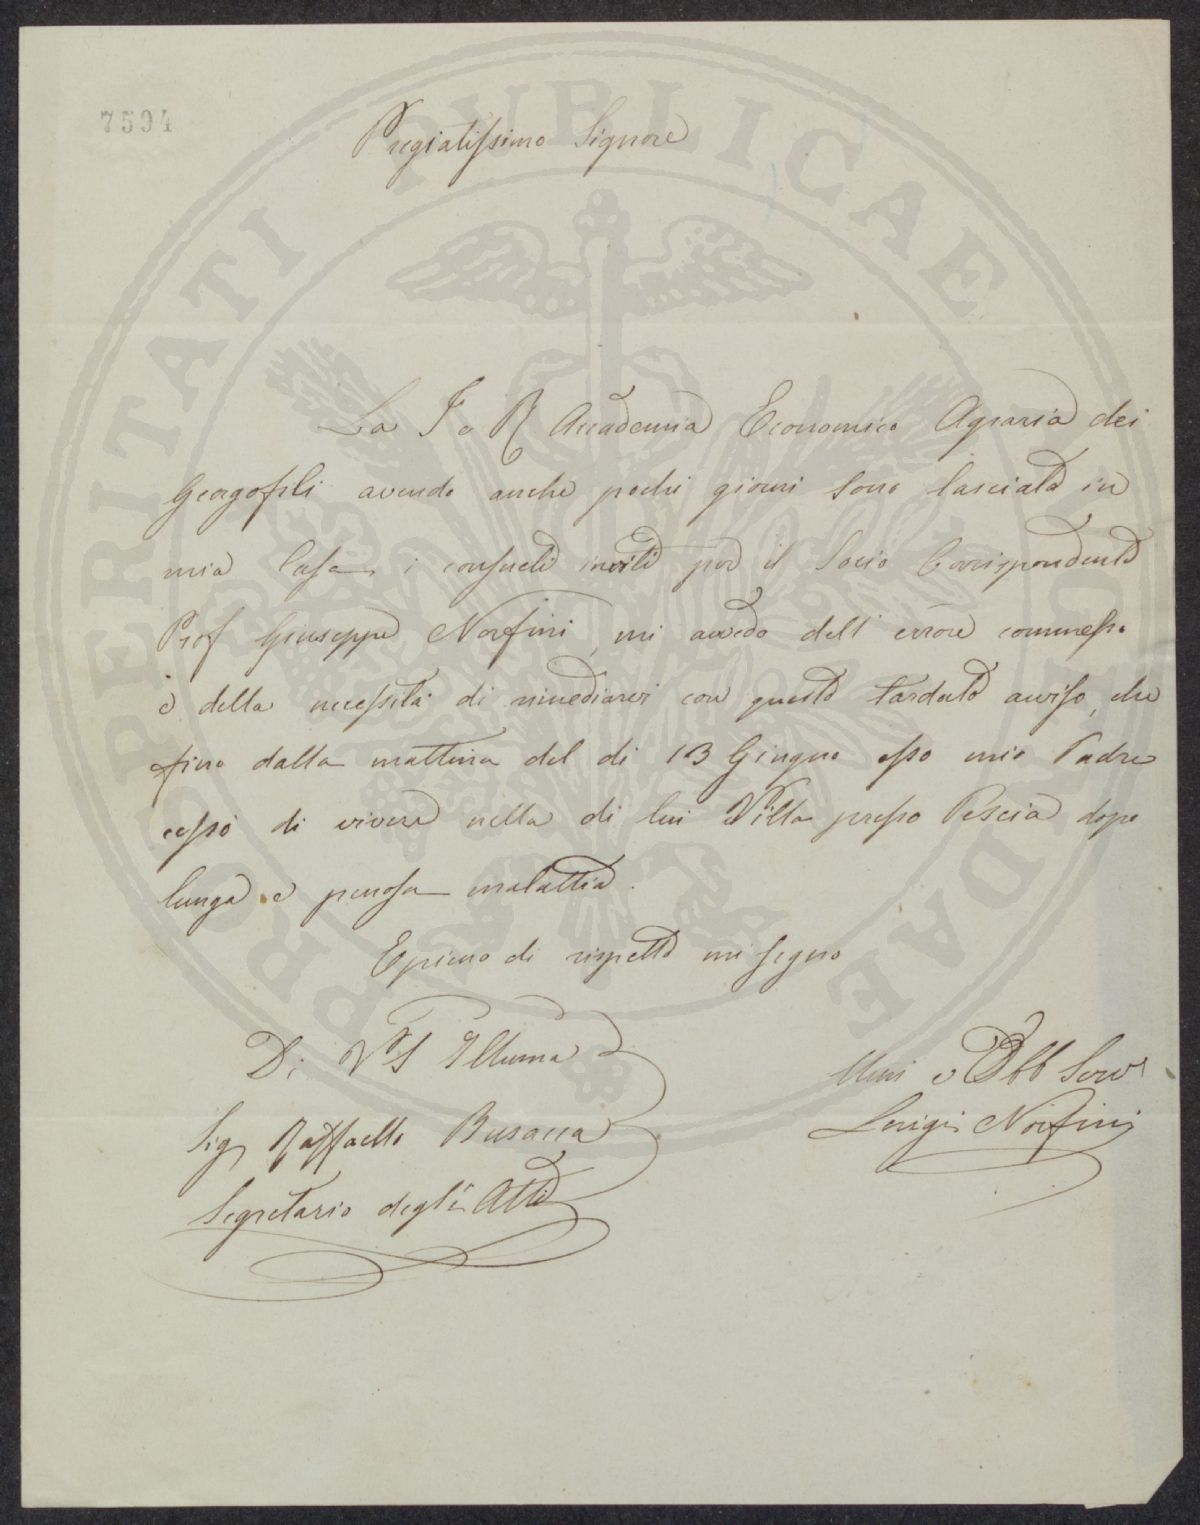 7594
Pregiatissimo Signore
La I e R Accademia Economico Agraria dei
Georgofili avendo anche pochi giorni sono lasciato in
mia Casa i consueti inviti per il Socio Corrispondente
Prof Giuseppe Norfini, mi avvedo dell' errore commesso
e della necessità di rimediarvi con questo tardato avviso, che
fino dalla mattina del di 13 Giugno esso mio Padre
cessò di vivere nella di lui Villa presso Pescia dopo
lunga e penosa malattia.
E pieno di rispetto mi segno
Di VS Illuma
Sig Raffaello Busacca
Segretario degli Atti
Umi e Obb Serv
Luigi Norfini
PROSPERITATI PUBLICAE AUGENDAE